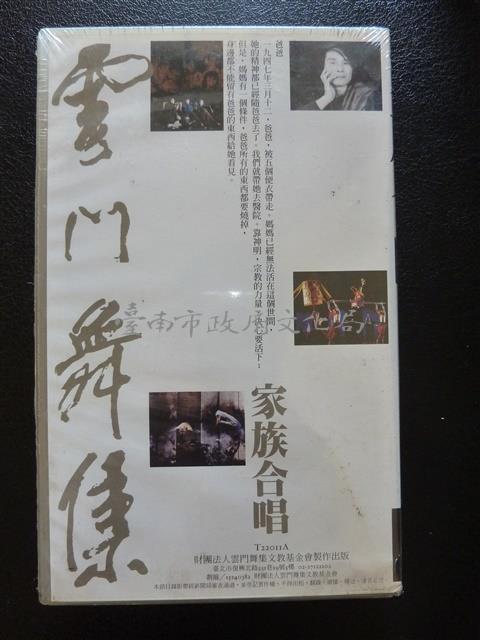 雲門舞集
爸爸
一九四七年三月十二，爸爸，被五個便衣帶走。媽媽已經無法活在這個世間，
她的精神都已經隨爸爸去了。我們就帶她去醫院。靠神明，宗教的力量，決心要活下
但是，媽媽有一個條件，爸爸所有的東西都要燒掉，
身邊都不能留有爸爸的東西給她看見。
臺南市政府文化局
家族合唱
T22011A
財團法人雲門舞集文教基金會製作出版
財團法人雲門舞集文教基金會